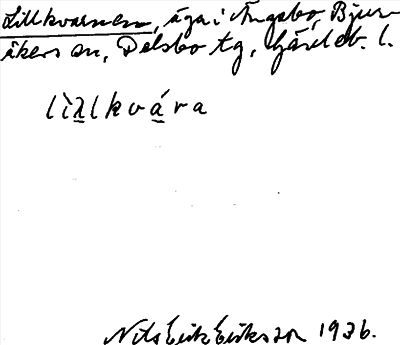 Lillkvarnen, äga i Ängebo, Bjur-
åkers sn, Delsbo tg, Gävleb. l.
lìλ̲lkvá̲ra
Nils Erik Eriksson 1936.